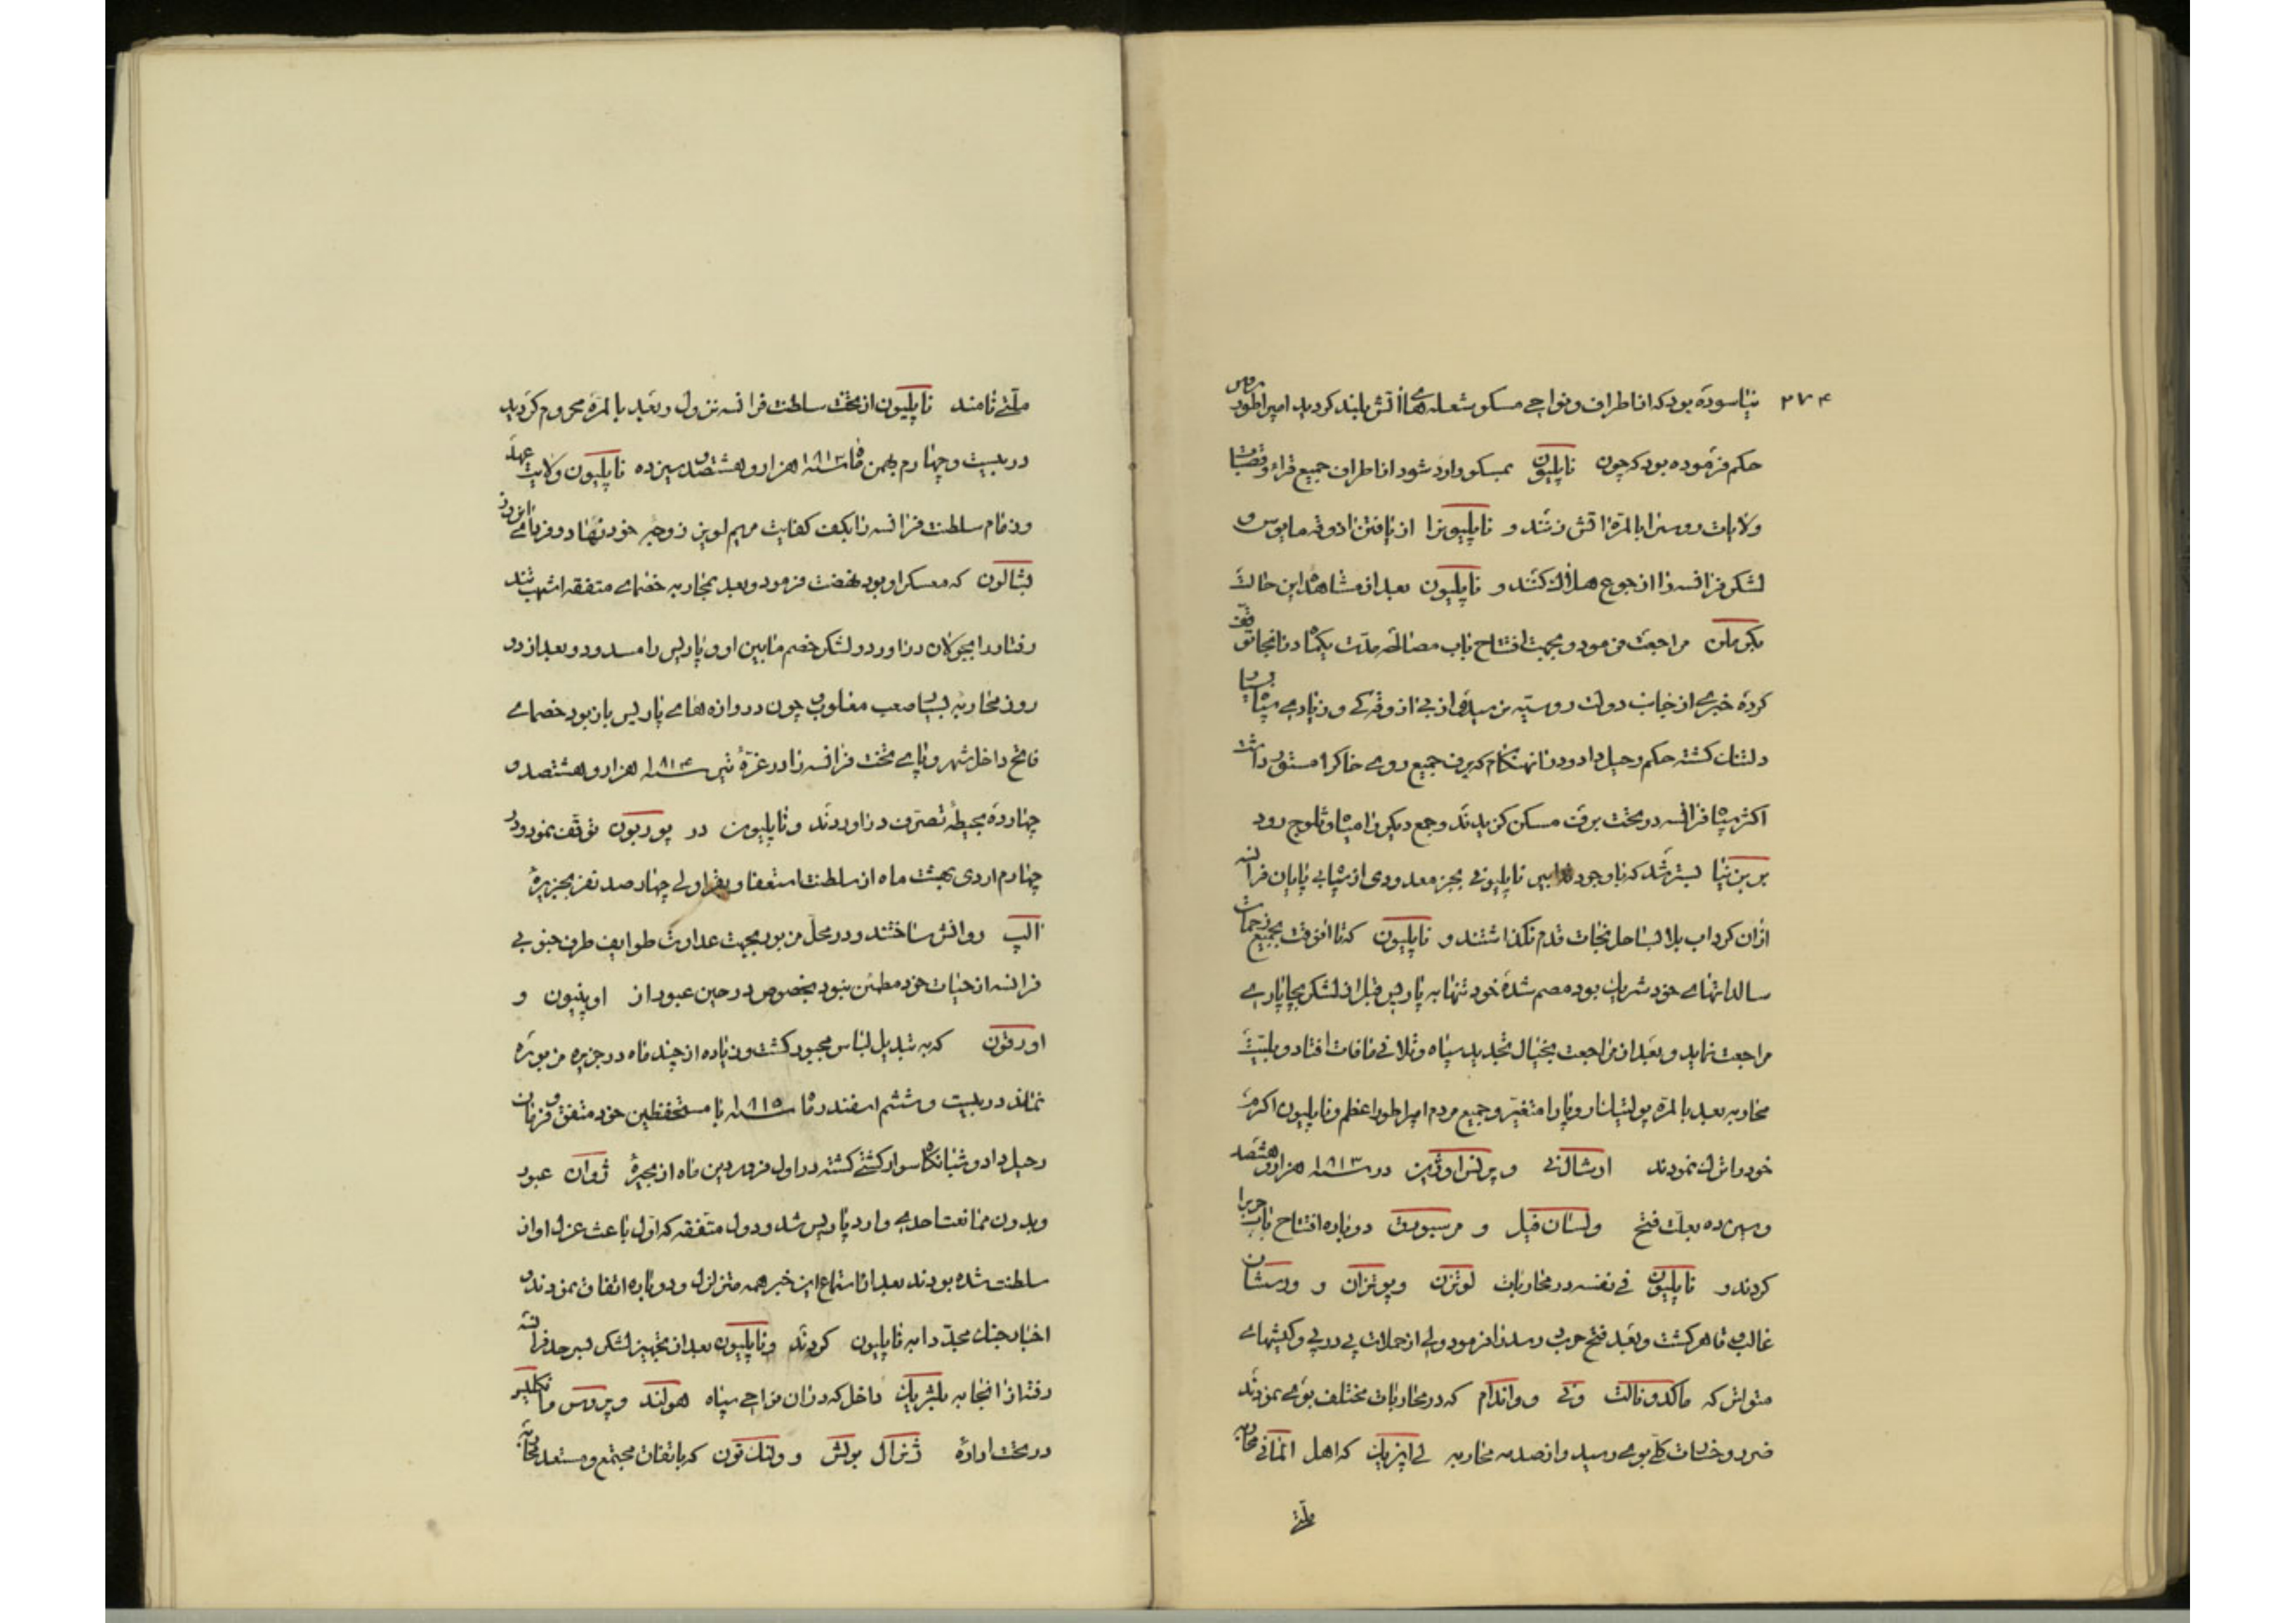 ۲۷۴
نیاسوده بود که از اطراف و نواحی مسکو شعله‌های آتش بلند گردید امپراطور روس
حکم فرموده بود که چون ناپلیون بمسکو وارد شود از اطراف جمیع قراء و قصبات
ولایات روس را بالمره آتش زنند و ناپلیونرا از یافتن آذوقه مایوس و
لشکر فرانسه را از جوع هلاک کنند و ناپلیون بعد از مشاهده این حالت
بکرملن مراجعت فرمود و بجهت افتتاح باب مصالحه مدت یکماه در آنجا توقف
کرده خبری از جانب دولت روسیه نرسید از بی آذوقه‌گی و زیادی سپاه بسیار
دلتنگ گشته حکم رحیل داد و در آن هنگام که برف جمیع روی خاک را مستور داشت
اکثر سپاه فرانسه در تحت برف مسکن گزیدند و جمع دیگر را میاه و ثلوج رود
برزینا بستر شد که با وجود تدابیر ناپلیونی بجز معدودی از سپاه بی پایان فرانسه
از آن گرداب بلا بساحل نجات قدم نگذاشتند و ناپلیون که تا آنوقت بجمیع زحمات
سالداتهای خود شریک بود مصمم شده خود تنها به پاریس قبل از لشکر بچاپاری
مراجعت نماید و بعد از مراجعت بخیال تجدید سپاه و تلافی مافات افتاد و بلیت
محاربه بعد بالمره پولتیک اروپا را متغیر و جمیع مردم امپراطور اعظم و ناپلیون اکرم
خود را ترک نمودند ارشال نی و پرنس اوژین در سنه ۱۸۱۳ هزار و هشتصد
و سیزده بعلت فتح ولسان فیل و مرسبورق دوباره افتتاح باب حرب را
کردند و ناپلیون فی نفسه در محاربات لوتزن و بوتزان و ورسشان
غالب و قاهر گشت و بعد فتح حرب درسدن را فرمود ولی از حملات پی در پی و کیشهای
متواتر که ماکدونالت و نی و واندام که در محاربات مختلف بوی نمودند
ضرر و خسارت کلی بوی رسید و از صدمه محاربه لی‌اپزیک که اهل المانی محاربه
ملتی
ملتی نامند ناپلیون از تخت سلطنت فرانسه نزول و بعد بالمره محروم گردید
در بیست و چهارم بهمن ماه سنه ۱۸۱۳ هزار و هشتصد و سیزده ناپلیون ولایت عهد
و زمام سلطنت فرانسه را بکف کفایت مریم لویز زوجه خود نهاد و فردای آنروز
بشالون که معسکر او بود نهضت فرمود و بعد بمحاربه خصمای متفقه اشهب تند
رفتار را بجولان درآورد و لشکر خصم مابین او و پاریس را مسدود و بعد از دو
روز محاربه بسیار صعب مغلوب و چون دروازه‌های پاریس باز بود خصمای
فاتح داخل شهر و پای تخت فرانسه را در غره تیر سنه ۱۸۱۴ هزار و هشتصد و
چهارده بحیطه تصرف درآوردند و ناپلیون در پوربون توقف نمود و در
چهارم اردی بهشت ماه از سلطنت استعفا و بقراولی چهار صد نفر بجزیره
الپ روانش ساختند و در محل مزبور بجهت عداوت طوایف طرف جنوبی
فرانسه از حیات خود مطمئن نبود بخصوص در حین عبور از اوینیون و
اورقون که به تبدیل لباس مجبور گشت و زیاده از چند ماه در جزیره مزبوره
نماند در بیست و ششم اسفند ماه سنه ۱۸۱۵ با مستحفظین خود متفق و فرمان
رحیل داد و شبانگاه سوار کشتی گشته در اول فروردین ماه از بحیره ژوآن عبور
و بدون ممانعت احدی وارد پاریس شد و دول متفقه که اول باعث عزل او از
سلطنت شده بودند بعد از استماع این خبر همه متزلزل و دوباره اتفاق نمودند و
اخبار جنگ مجدد را به ناپلیون کردند و ناپلیون بعد از تجهیز لشکر بسرحد فرانسه
رفته از آنجا به بلژیک داخل که در آن نواحی سپاه هولند و پروس و انکلیز
در تحت اداره ژنرال بولش و ولنک تون که باتفاق مجتمع و مستعد محاربه